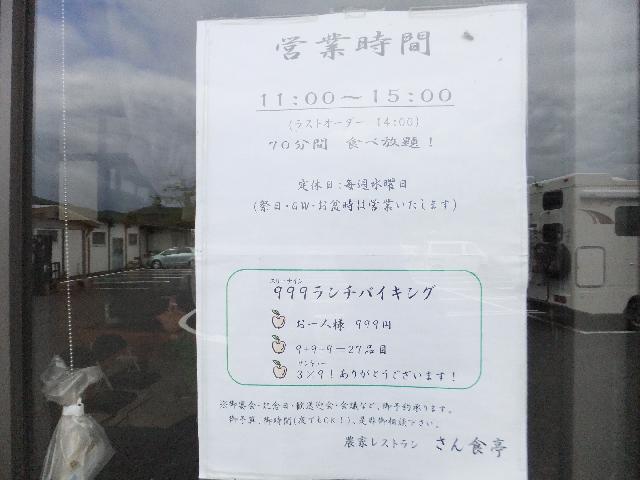 営業時間
11:00～15:00
(ラストオーダー 14:00)
70分間 食べ放題！
定休日：毎週水曜日
(祭日・GW・お盆時は営業いたします)
スリーナイン
999ランチバイキング
お一人様 999円
9+9+9=27品目
サンキュー
3/9！ありがとうございます！
※御宴会・記念日・歓送迎会・会議など、御予約承ります。
御予算、御時間(夜でもOK！)、是非御相談下さい。
農家レストラン さん食亭